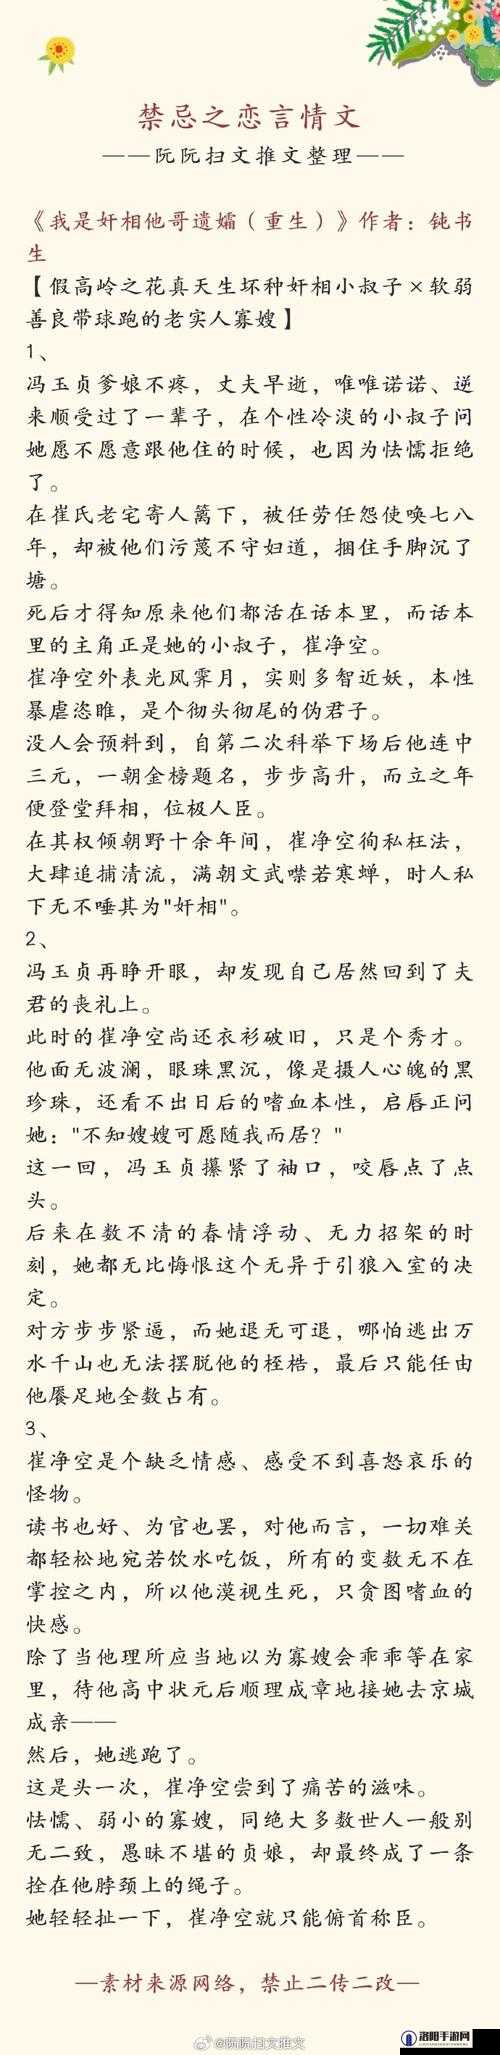 禁忌之恋言情文
——阮阮扫文推文整理——
《我是奸相他哥遗孀（重生）》作者：钝书
生
【假高岭之花真天生坏种奸相小叔子×软弱
善良带球跑的老实人寡嫂】
1、
冯玉贞爹娘不疼，丈夫早逝，唯唯诺诺、逆
来顺受过了一辈子，在个性冷淡的小叔子问
她愿不愿意跟他住的时候，也因为怯懦拒绝
了。
在崔氏老宅寄人篱下，被任劳任怨使唤七八
年，却被他们污蔑不守妇道，捆住手脚沉了
塘。
死后才得知原来他们都活在话本里，而话本
里的主角正是她的小叔子，崔净空。
崔净空外表光风霁月，实则多智近妖，本性
暴虐恣睢，是个彻头彻尾的伪君子。
没人会预料到，自第二次科举下场后他连中
三元，一朝金榜题名，步步高升，而立之年
便登堂拜相，位极人臣。
在其权倾朝野十余年间，崔净空徇私枉法，
大肆追捕清流，满朝文武噤若寒蝉，时人私
下无不唾其为"奸相"。
2、
冯玉贞再睁开眼，却发现自己居然回到了夫
君的丧礼上。
此时的崔净空尚还衣衫破旧，只是个秀才。
他面无波澜，眼珠黑沉，像是摄人心魄的黑
珍珠，还看不出日后的嗜血本性，启唇正问
她："不知嫂嫂可愿随我而居？"
这一回，冯玉贞攥紧了袖口，咬唇点了点
头。
后来在数不清的春情浮动、无力招架的时
刻，她都无比悔恨这个无异于引狼入室的决
定。
对方步步紧逼，而她退无可退，哪怕逃出万
水千山也无法摆脱他的桎梏，最后只能任由
他餍足地全数占有。
3、
崔净空是个缺乏情感、感受不到喜怒哀乐的
怪物。
读书也好、为官也罢，对他而言，一切难关
都轻松地宛若饮水吃饭，所有的变数无不在
掌控之内，所以他漠视生死，只贪图嗜血的
快感。
除了当他理所应当地以为寡嫂会乖乖等在家
里，待他高中状元后顺理成章地接她去京城
成亲——
然后，她逃跑了。
这是头一次，崔净空尝到了痛苦的滋味。
怯懦、弱小的寡嫂，同绝大多数世人一般别
无二致，愚昧不堪的贞娘，却最终成了一条
拴在他脖颈上的绳子。
她轻轻扯一下，崔净空就只能俯首称臣。
—素材来源网络，禁止二传二改—
@阮阮扫文推文
洛阳手游网